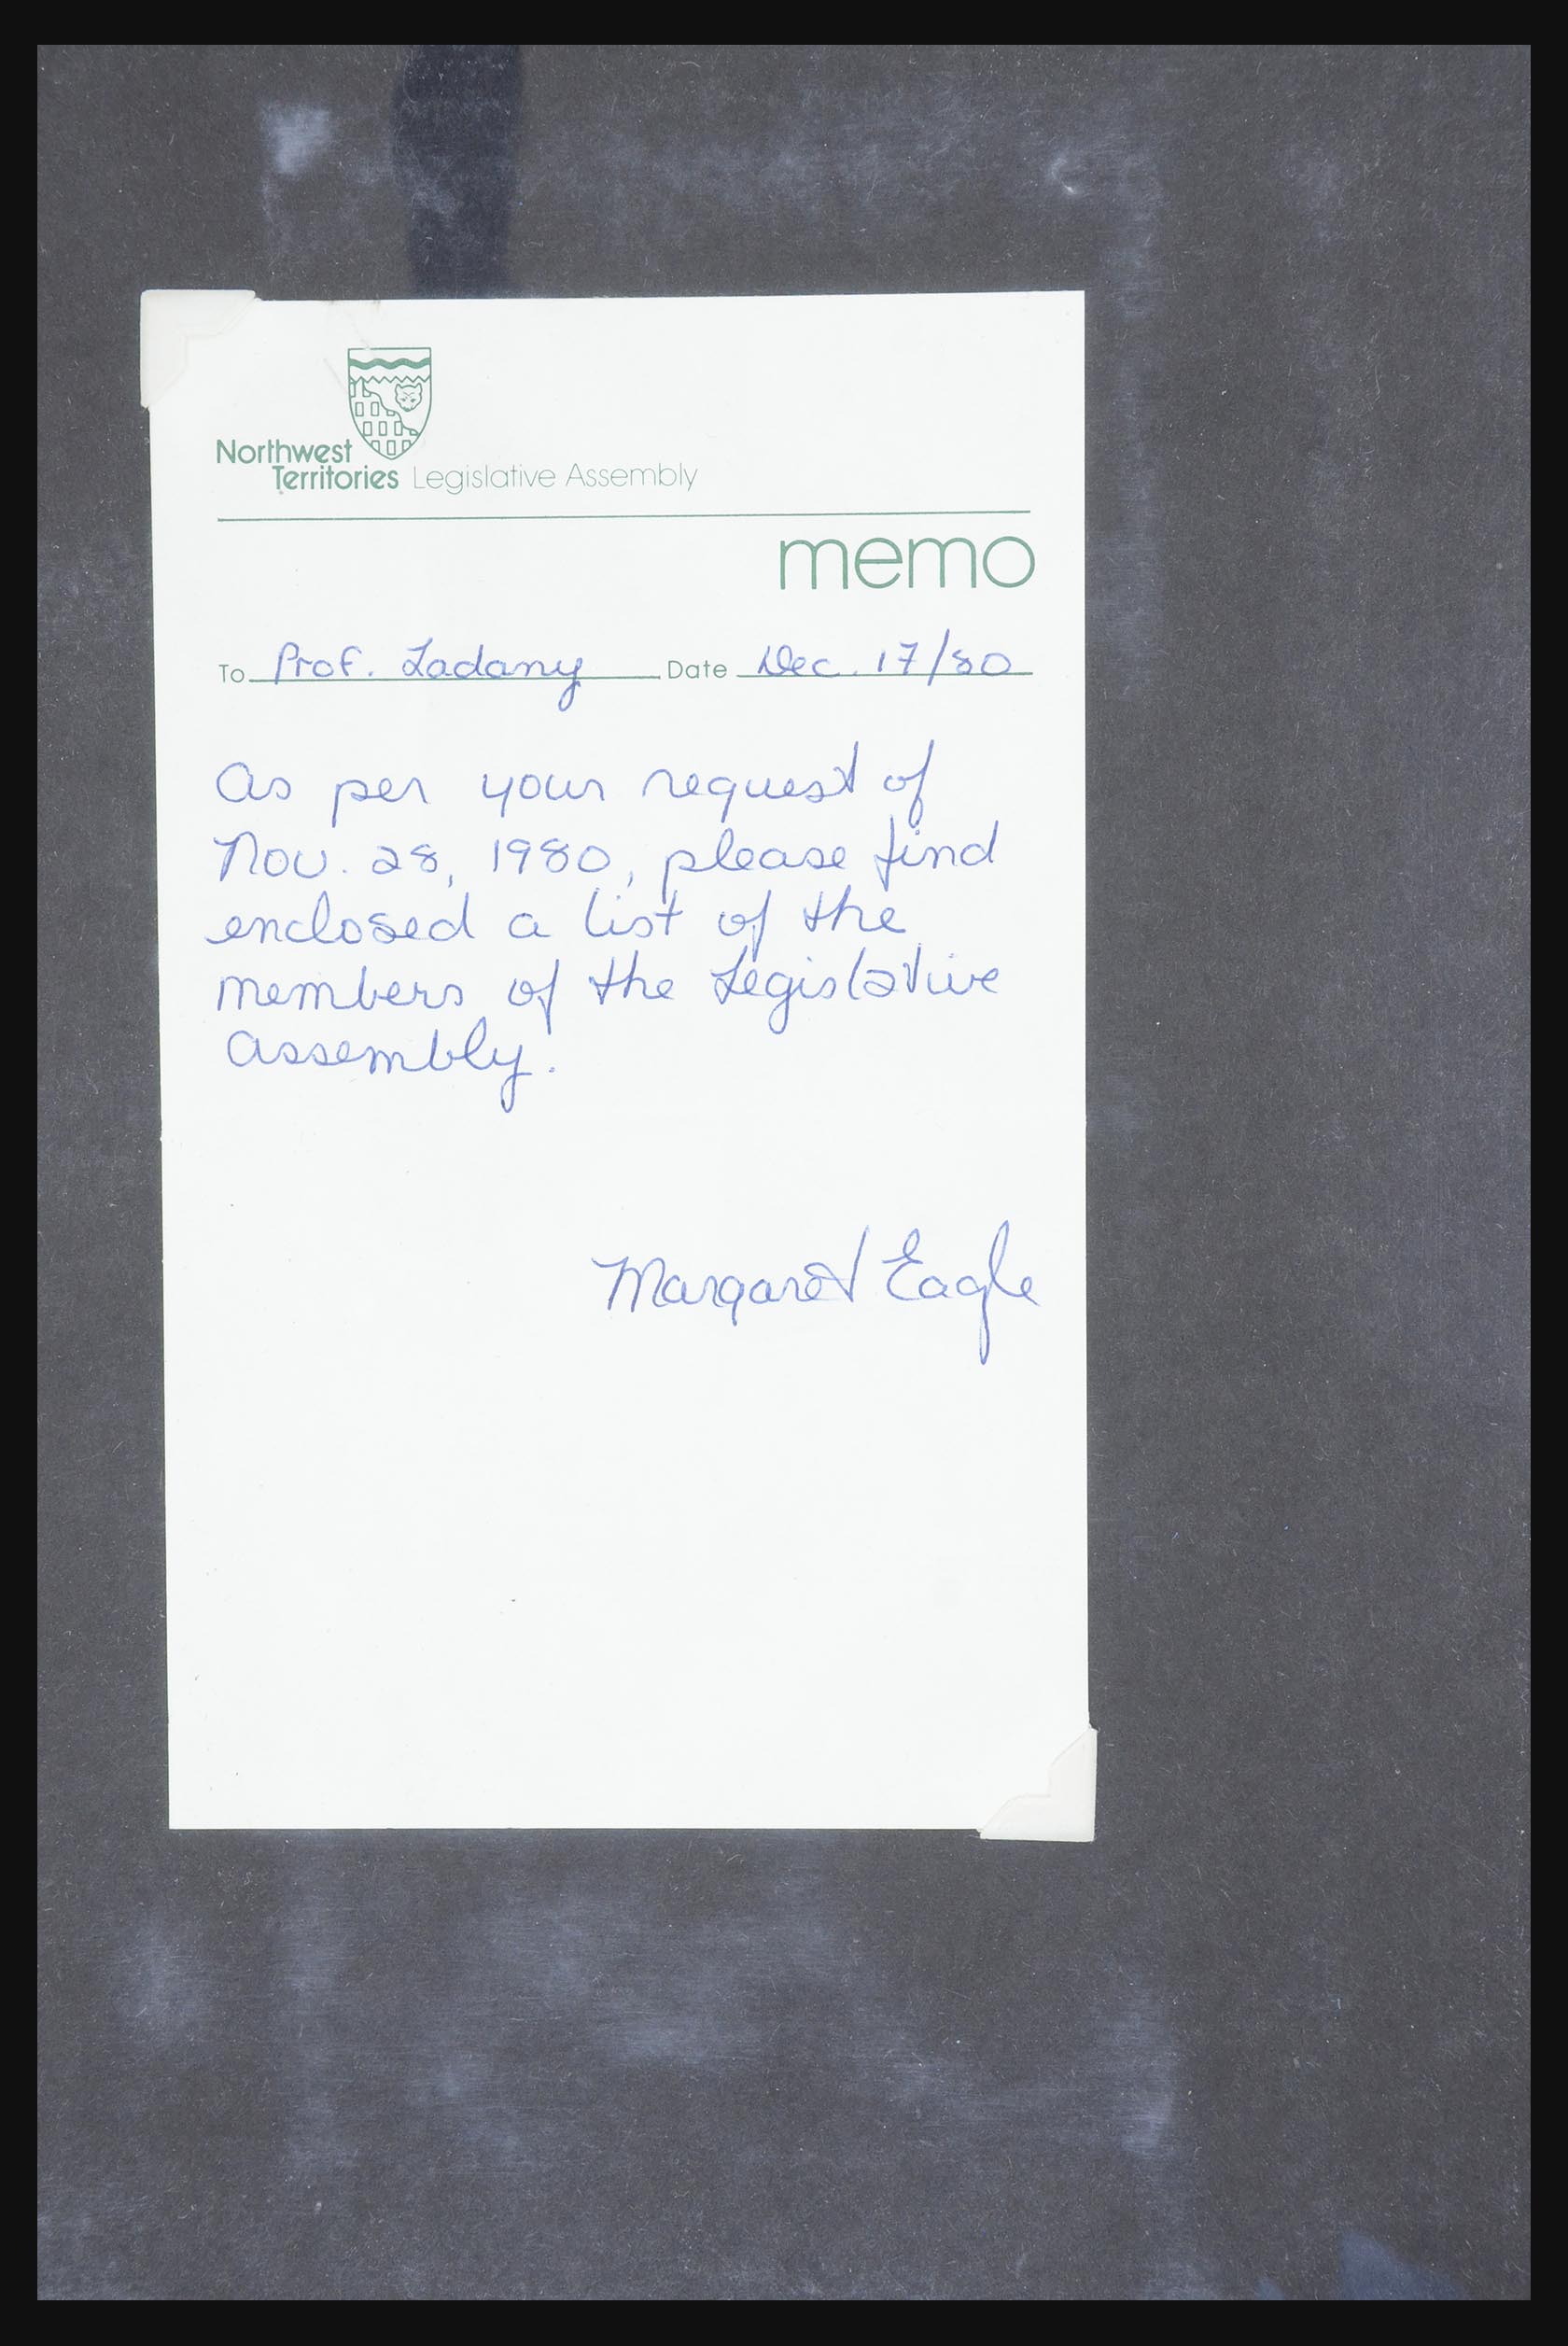 Northwest
Territories Legislative Assembly
memo
To Prof. Ladany Date Dec. 17/80
As per your request of
Nov. 28, 1980, please find
enclosed a list of the
members of the Legislative
Assembly.
Margaret Eagle